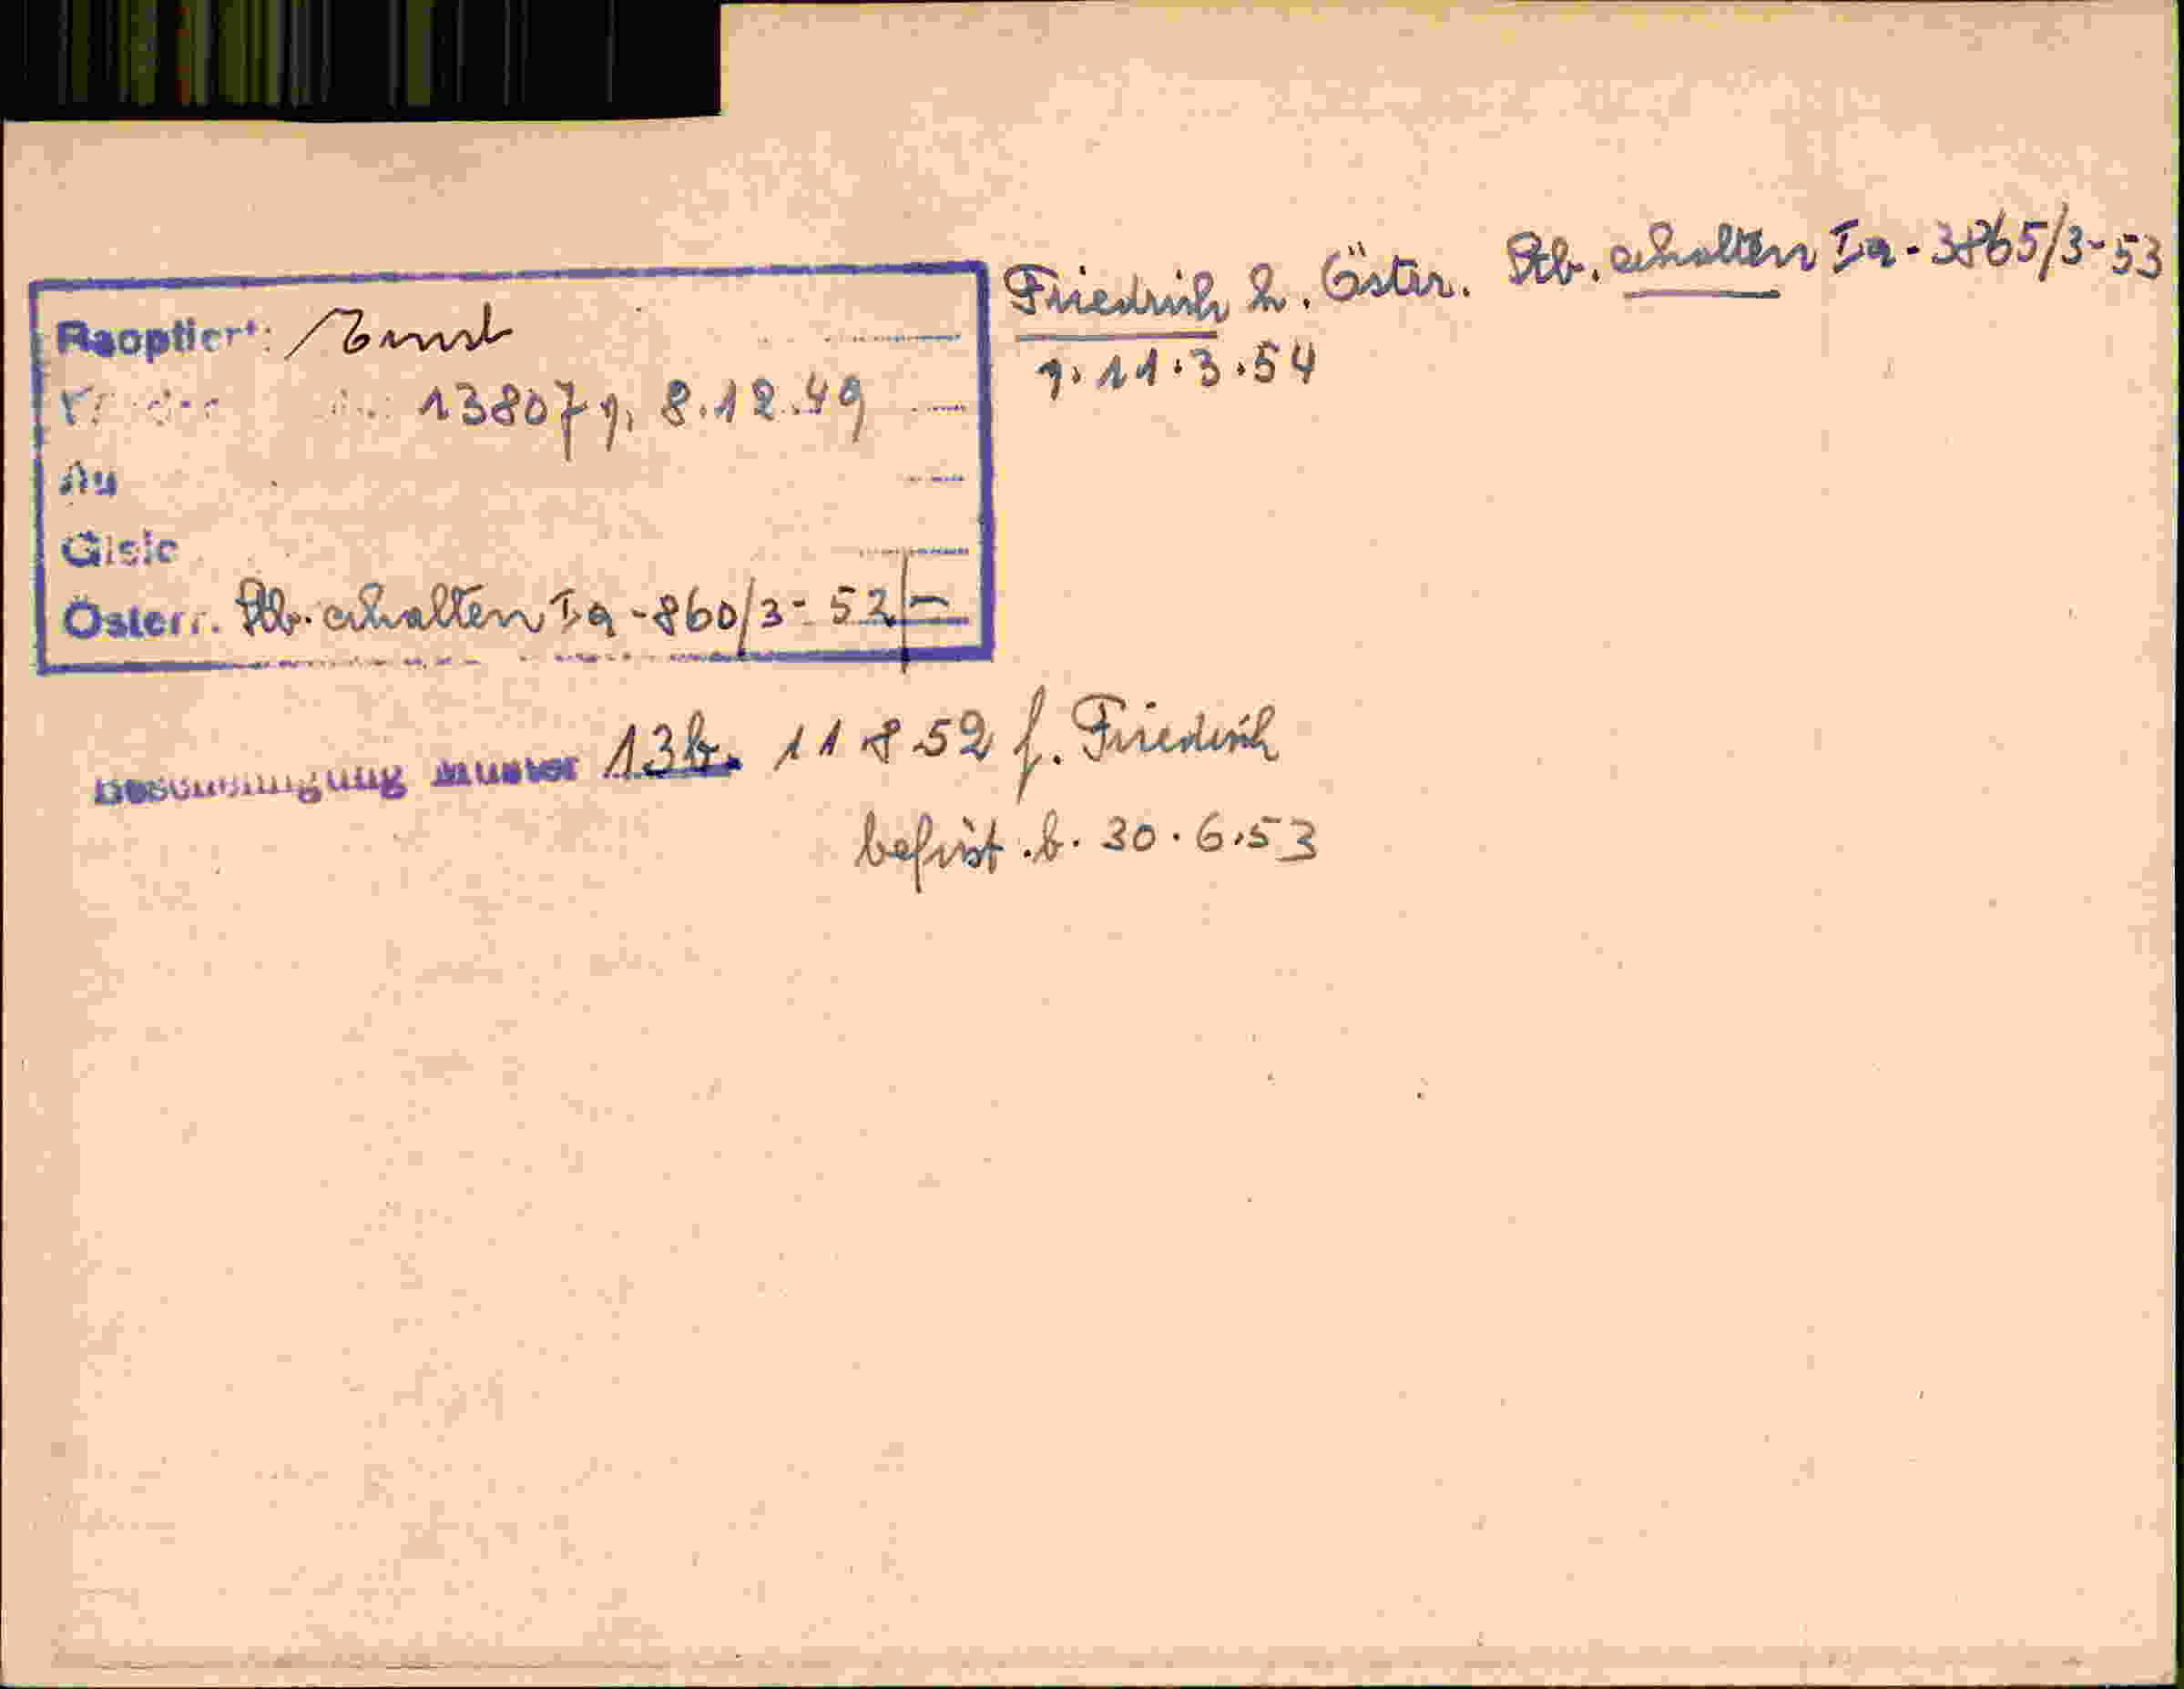 Reoptiert: Ernst
13807 v. 8.12.49
Gisie
Österr. Stb. erhalten Ia-860/3-52
Friedrich h. Öster. Stb. erhalten Ia-3865/3-53
v. 11.3.54
Bescheinigung Muster 13b. 11 8 52 f. Friedrich
befrist. b. 30.6.53